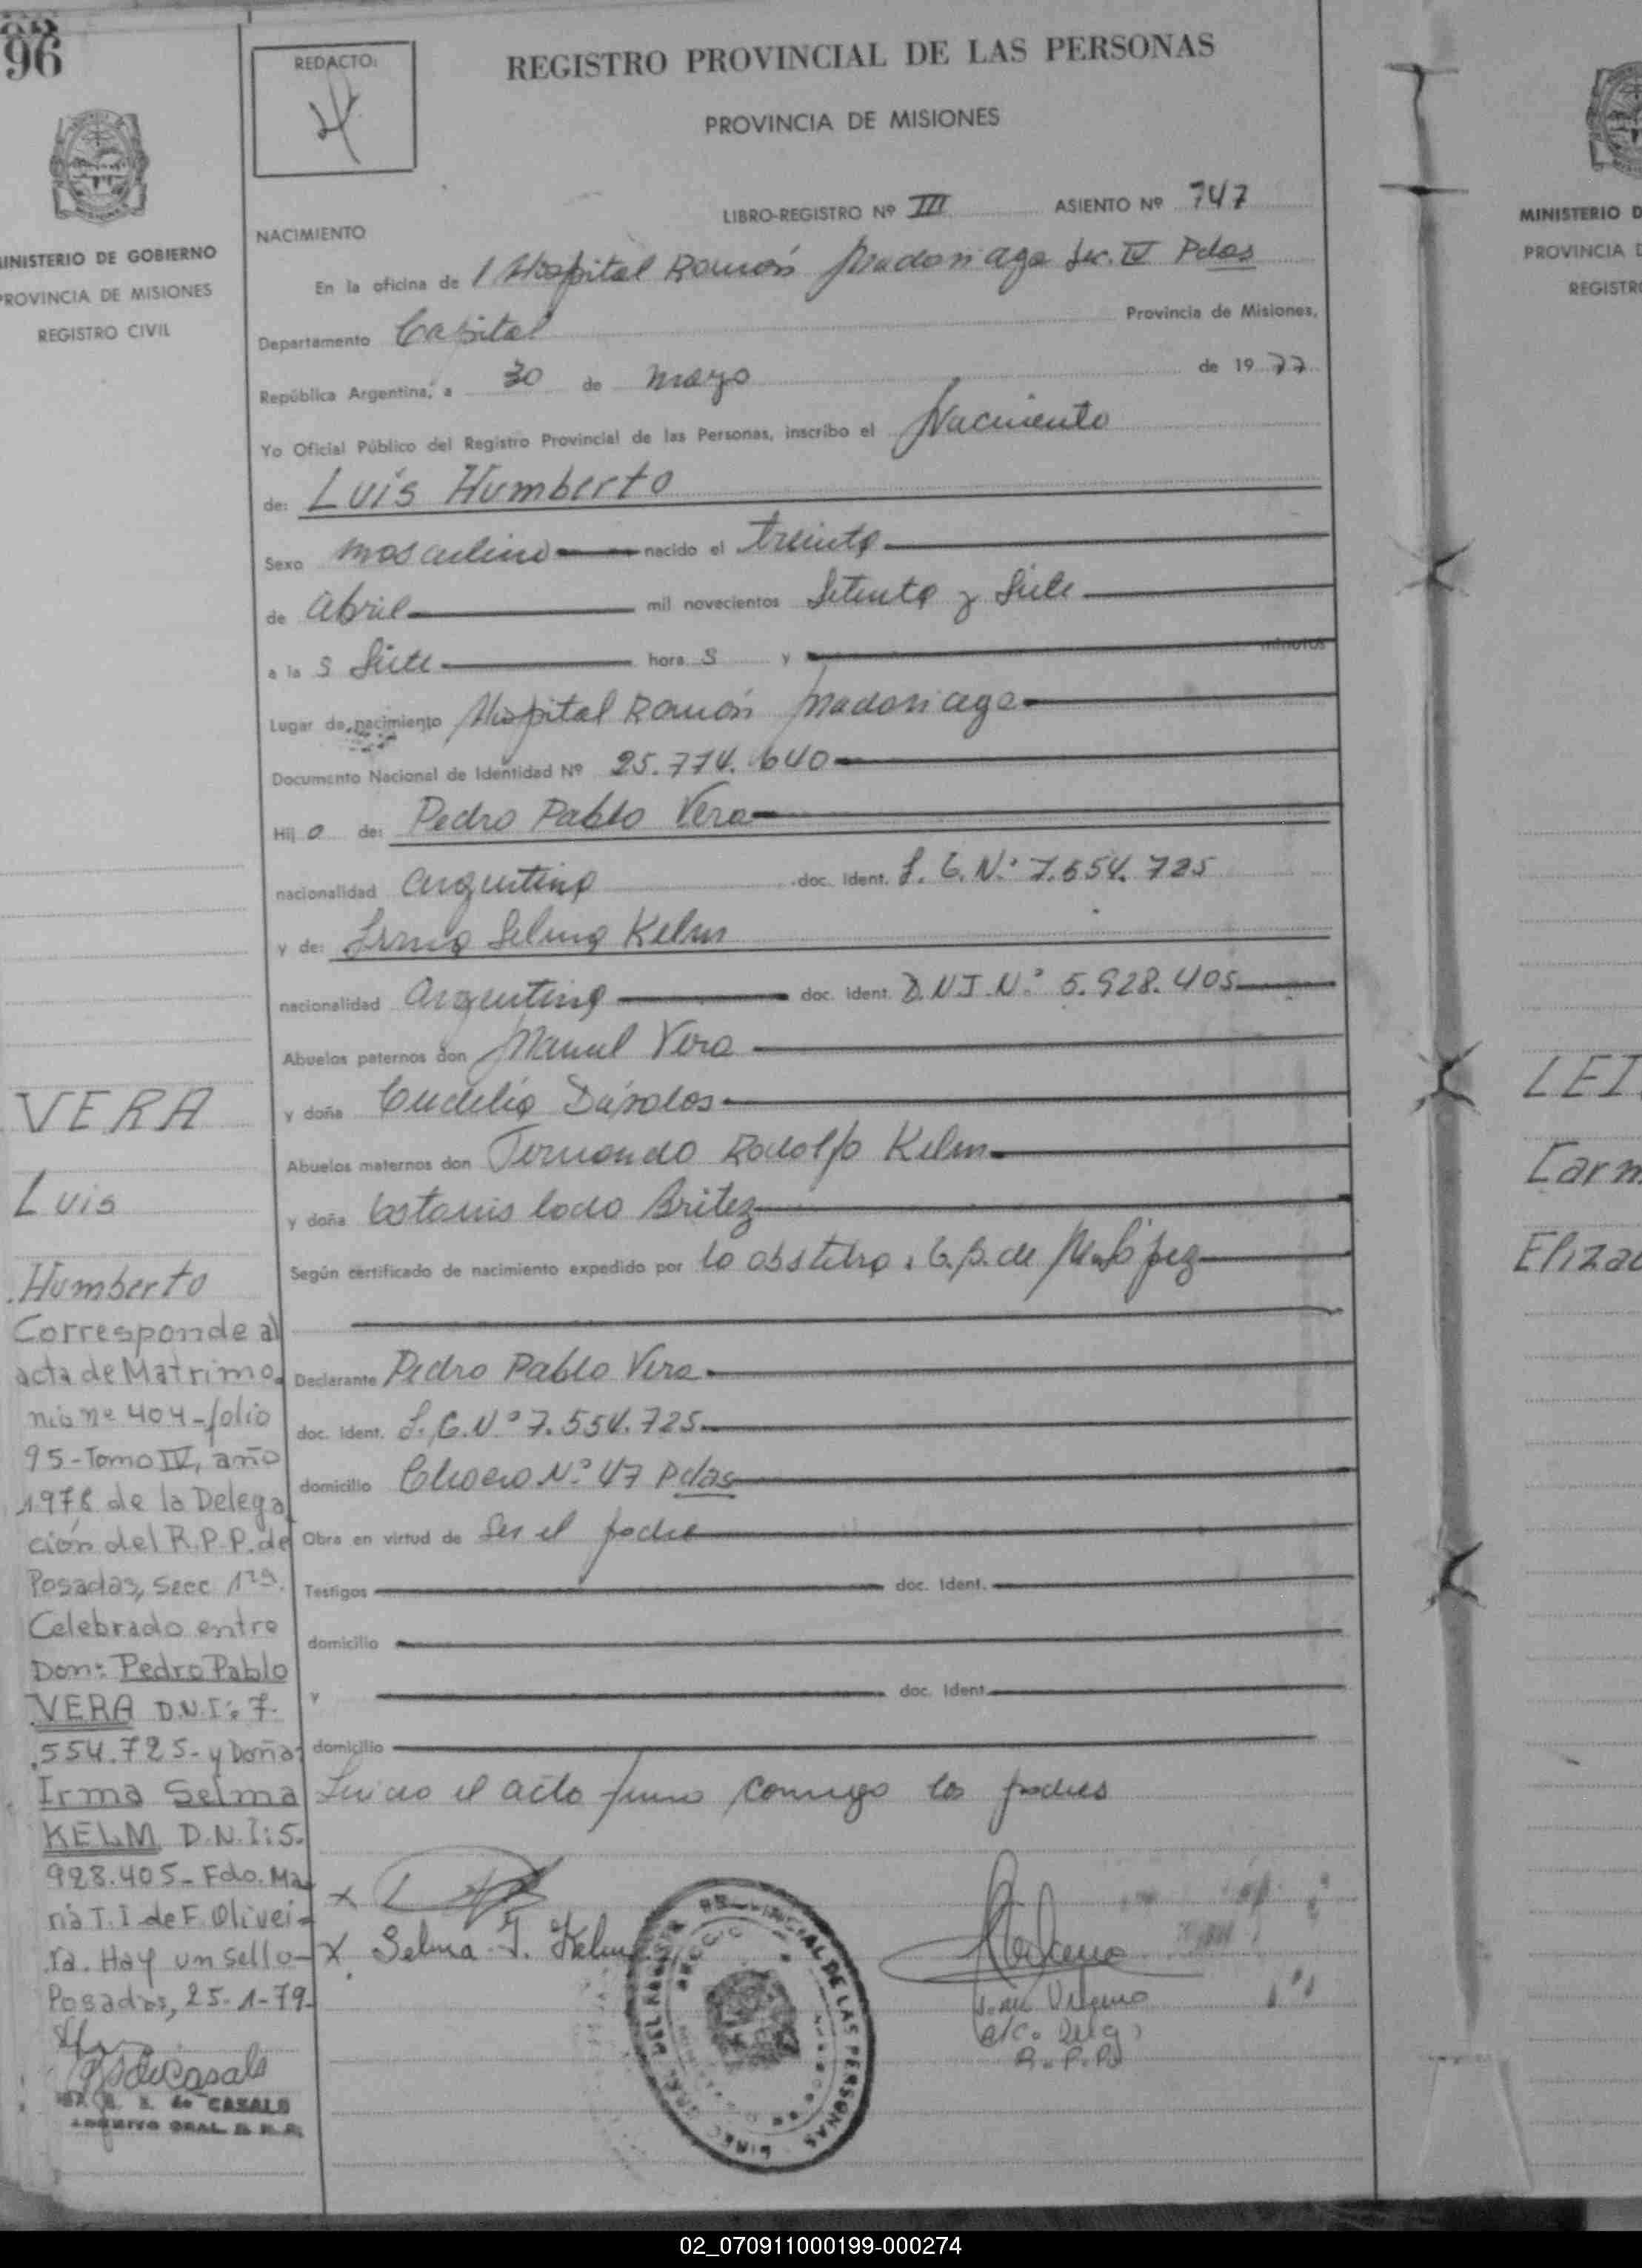 96
MINISTERIO DE GOBIERNO
PROVINCIA DE MISIONES
REGISTRO CIVIL
REDACTO:
REGISTRO PROVINCIAL DE LAS PERSONAS
PROVINCIA DE MISIONES
LIBRO-REGISTRO Nº III ASIENTO Nº 747
NACIMIENTO
En la oficina de l Hospital Ramón Madariaga Sec. IV Pdas
Departamento Capital Provincia de Misiones,
República Argentina, a 30 de mayo de 1977
Yo Oficial Público del Registro Provincial de las Personas, inscribo el Nacimiento
de: Luis Humberto
Sexo masculino nacido el treinta
de abril mil novecientos Setenta y Siete
a la s Siete hora s y minutos
Lugar de nacimiento Hospital Ramón Madariaga
Documento Nacional de Identidad Nº 25.774.640
Hij o de: Pedro Pablo Vera
nacionalidad argentina doc. Ident. L. E. N.º 7.554.725
y de: Irma Selma Kelm
nacionalidad argentina doc. ident. D.N.I. N.º 5.928.405
Abuelos paternos don Manuel Vera
y doña Dávalos
Abuelos maternos don Fernando Rodolfo Kelm
y doña Estanis lada Britez
Según certificado de nacimiento expedido por la obstetra, E.B. de M. López
Declarante Pedro Pablo Vera
doc. Ident. L. E. N.º 7.554.725
domicilio N.º 47 Pdas
Obra en virtud de Ser el padre
Testigos doc. Ident.
domicilio
y doc. Ident.
domicilio
Leido el acta firma conmigo los padres
Selma I. Kelm
a/c. Deleg.
R.P.P.
DIREC. GRAL. DEL REGISTRO PROVINCIAL DE LAS PERSONAS
VERA
Luis
Humberto
Corresponde al
acta de Matrimo
nio nº 404-folio
95-Tomo IV, año
1978 de la Delega
ción del R.P.P. de
Posadas, Secc 1ra.
Celebrado entre
Don: Pedro Pablo
VERA D.N.I: 7.
554.725- y Doña:
Irma Selma
KELM D.N.I: 5.
928.405- Fdo. Ma
ría T. I de F. Olivei
ra. Hay un sello-
Posadas, 25-1-79-
de CASALS
ARCHIVO GRAL R.P.P.
MINISTERIO D
PROVINCIA D
REGISTR
LEI
Carm
Elizab
02_070911000199-000274